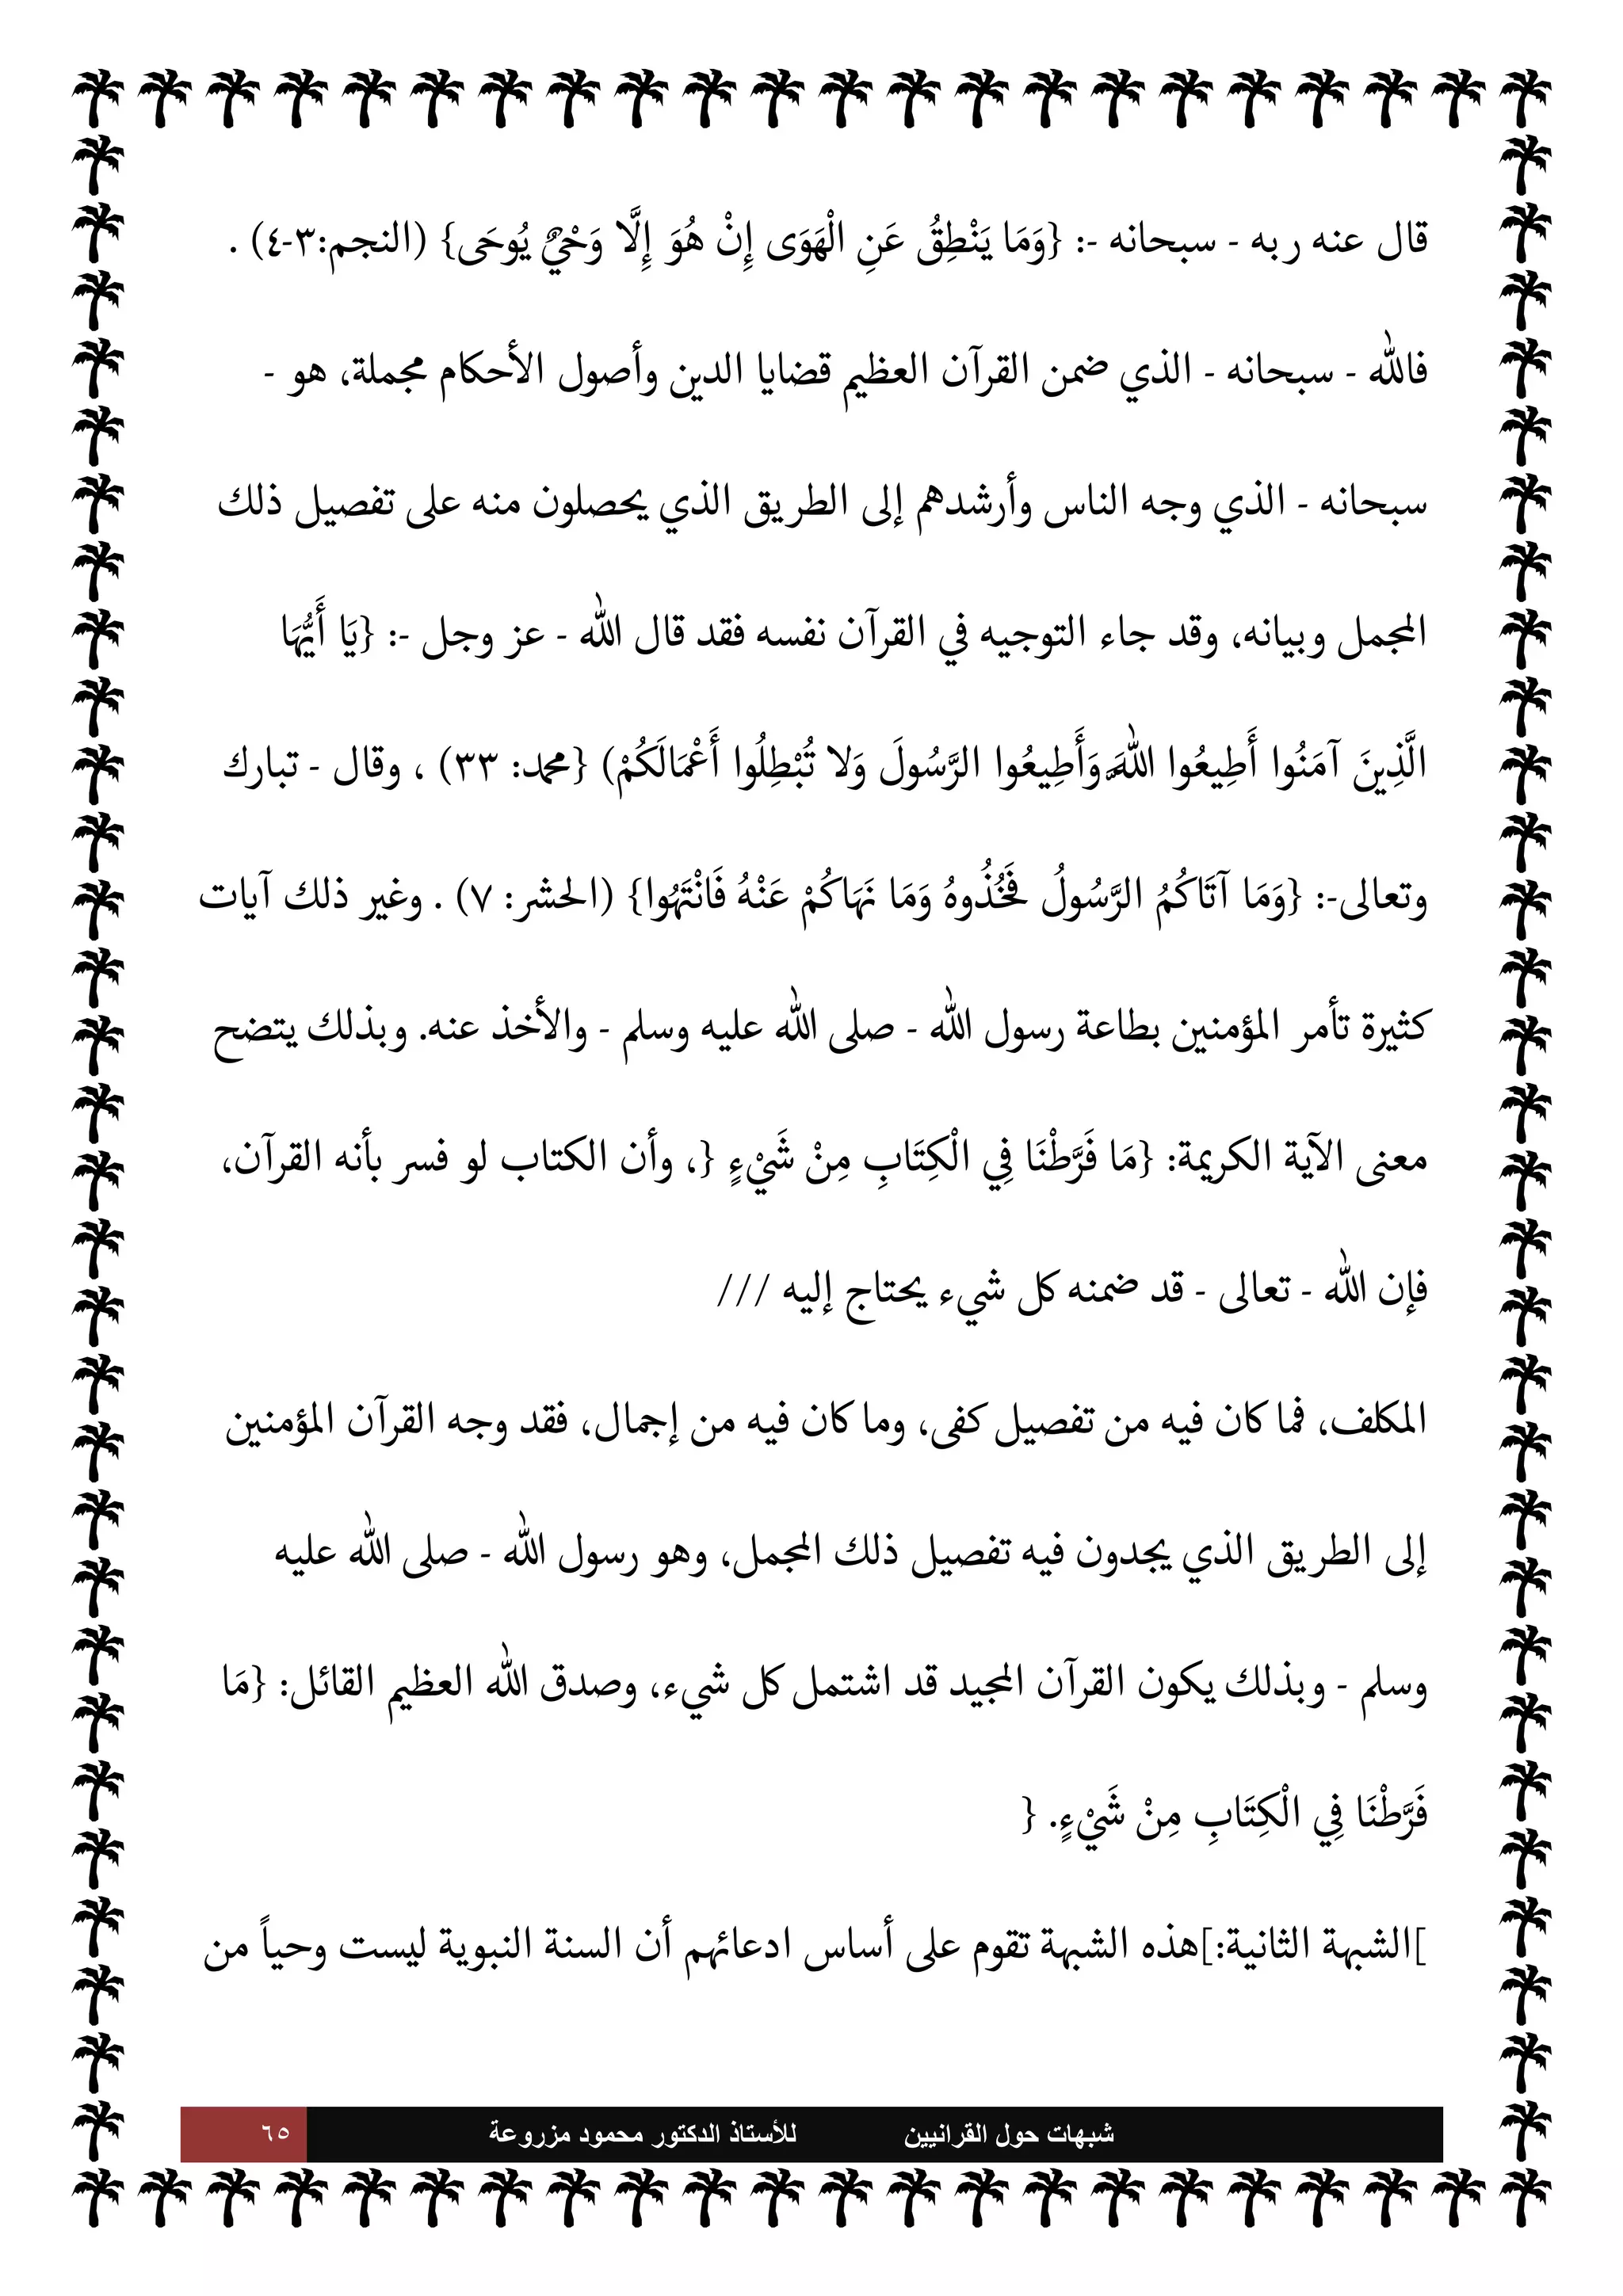 قال عنه ربه - سبحانه -: {وَمَا يَنْطِقُ عَنِ الْهَوَى إِنْ هُوَ إِلَّا وَحْيٌ يُوحَى} (النجم:٣-٤) .
فالله - سبحانه - الذي ضمن القرآن العظيم قضايا الدين وأصول الأحكام مجملة، هو -
سبحانه - الذي وجه الناس وأرشدهم إلى الطريق الذي يحصلون منه على تفصيل ذلك
المجمل وبيانه، وقد جاء التوجيه في القرآن نفسه فقد قال الله - عز وجل -: {يَا أَيُّهَا
الَّذِينَ آمَنُوا أَطِيعُوا اللهَ وَأَطِيعُوا الرَّسُولَ وَلا تُبْطِلُوا أَعْمَالَكُمْ) {محمد: ٣٣) ، وقال - تبارك
وتعالى-: {وَمَا آتَاكُمُ الرَّسُولُ فَخُذُوهُ وَمَا نَهَاكُمْ عَنْهُ فَانْتَهُوا} (الحشر: ٧) . وغير ذلك آيات
كثيرة تأمر المؤمنين بطاعة رسول الله - صلى الله عليه وسلم - والأخذ عنه. وبذلك يتضح
معنى الآية الكريمة: {مَا فَرَّطْنَا فِي الْكِتَابِ مِنْ شَيْءٍ {، وأن الكتاب لو فسر بأنه القرآن،
فإن الله - تعالى - قد ضمنه كل شيء يحتاج إليه ///
المكلف، فما كان فيه من تفصيل كفى، وما كان فيه من إجمال، فقد وجه القرآن المؤمنين
إلى الطريق الذي يجدون فيه تفصيل ذلك المجمل، وهو رسول الله - صلى الله عليه
وسلم - وبذلك يكون القرآن المجيد قد اشتمل كل شيء، وصدق الله العظيم القائل: {مَا
فَرَّطْنَا فِي الْكِتَابِ مِنْ شَيْءٍ. {
]الشبهة الثانية:]هذه الشبهة تقوم على أساس ادعائهم أن السنة النبوية ليست وحياً من
شبهات حول القرانيين للأستاذ الدكتور محمود مزروعة ٦٥